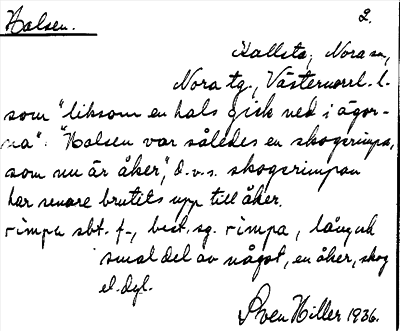 Halsen. 2.
Hallsta, Nora sn,
Nora tg., Västernorrl. l.
som "liksom en hals gick ned i ägor-
na". "Halsen var således en skogsrimpa,
som nu är åker," d.v.s. skogsrimpan
har senare brutits upp till åker.
rimpa sbt. f., best. sg. rimpa, lång och
smal del av något, en åker, skog
el. dyl.
Sven Hiller 1936.